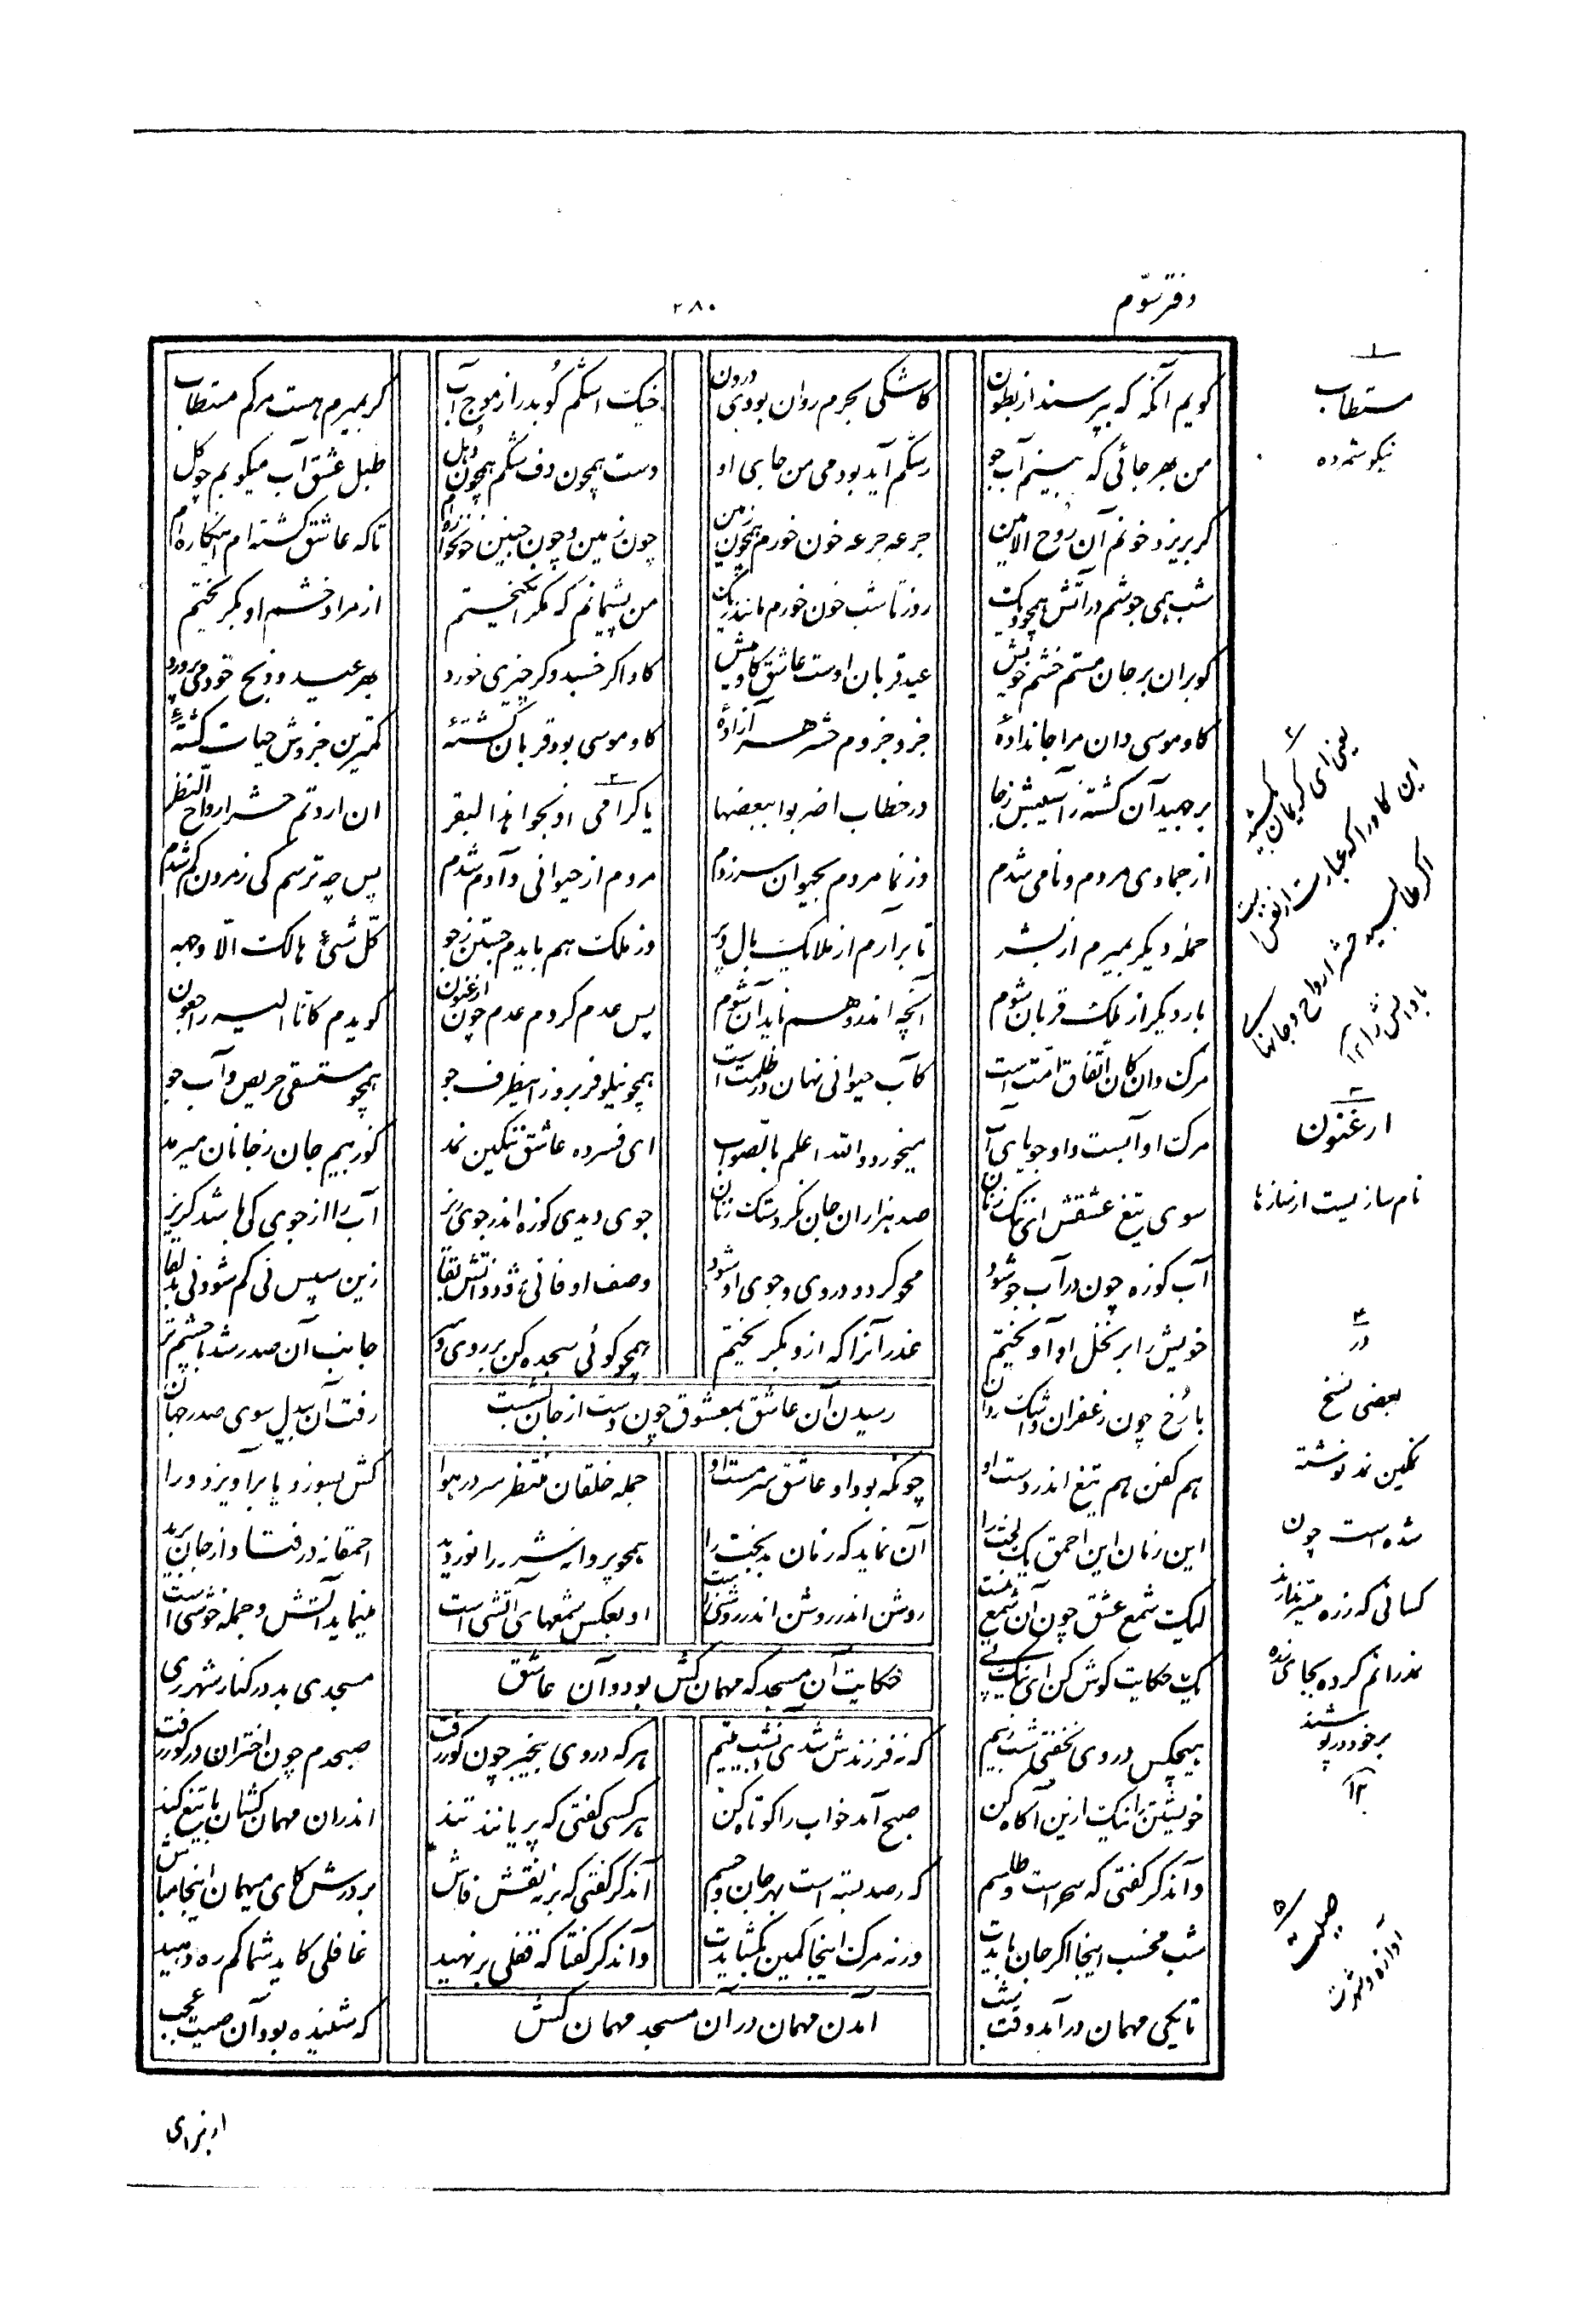 دفتر سوم
۲۸۰
کویم آنکه که بپرسند از بطون کاشکی بحرم روان بودی درون خیک اشکم کو بدر از موج آب کر بمیرم هست مرکم مستطاب
من بهر جائی که بینم آب جو رشکم آید بودمی من جای او دست همچون دف شکم همچون دهل طبل عشق آب میکوبم چو کل
کر بریزد خونم آن روح الامین جرعه جرعه خون خورم همچون زمین چون زمین و چون جنین خونخواره‌ام تا که عاشق کشته‌ام اینکاره‌ام
شب همی جوشم در آتش همچو دیک روز تا شب خون خورم مانند ریک من پشیمانم که مکر انکیختم از مراد خشم او بکریختم
کو بران بر جان مستم خشم خویش عید قربان اوست عاشق کاومیش کاو اکر خسبد و کر چیزی خورد بهر عید و ذبح خود می‌پرورد
کاو موسی دان مرا جان دادهٔ جزو جزوم حشر هر آزادهٔ کاو موسی بود قربان کشتهٔ کمترین جزوش حیات کشتهٔ
برجهید آن کشته ز آسیبش ز جا در خطاب اضربوا ببعضها یا کرامی اذبحوا هذا البقر ان اردتم حشر ارواح النظر
از جمادی مردم و نامی شدم وز نما مردم بحیوان سرزدم مردم از حیوانی و آدم شدم پس چه ترسم کی ز مردن کم شدم
حمله دیکر بمیرم از بشر تا برآرم از ملایک بال و پر وز ملک هم بایدم جستن ز جو کل شیء هالک الا وجهه
بار دیکر از ملک قربان شوم آنچه اندر وهم ناید آن شوم پس عدم کردم عدم چون ارغنون کویدم کانا الیه راجعون
مرک دان کان اتفاق امت است کآب حیوانی نهان در ظلمت است همچو نیلوفر برو زین طرف جو همچو مستسقی حریص و آب جو
مرک او آبست و او جویای آب میخورد والله اعلم بالصواب ای فسرده عاشق ننکین نمد کو ز بیم جان ز جانان میرمد
سوی تیغ عشقش ای ننک زنان صد هزاران جان نکر دستک زنان جوی دیدی کوزه اندر جوی ریز آب را از جوی کی باشد کریز
آب کوزه چون در آب جو شود محو کردد در وی و جوی او شود وصف او فانی شد و ذاتش بقا زین سپس نی کم شود نی بد لقا
خویش را بر نخل او آویختم عذر آنرا که ازو بکریختم همچو کوئی سجده کن بر روی و سر جانب آن صدر شد با چشم تر
رسیدن آن عاشق بمعشوق چون دست از جان بشست
با رخ چون زعفران و اشک روان رفت آن بیدل سوی صدر جهان
هم کفن هم تیغ اندر دست او چونکه بود او عاشق سرمست او جمله خلقان منتظر سر در هوا کش بسوزد یا برآویزد ورا
این زمان این احمق یک لخت را آن نماید که زمان بدبخت را همچو پروانه شرر را نور دید احمقانه در فتاد و از جان برید
لیک شمع عشق چون آن شمع نیست روشن اندر روشن اندر روشنی است او بعکس شمعهای آتشی است مینماید آتش و جمله خوشی است
حکایت آن مسجد که مهمان کش بود و آن عاشق
یک حکایت کوش کن ای نیک پی مسجدی بد در کنار شهر ری
هیچکس در وی نخفتی شب ز بیم که نه فرزندش شدی آنشب یتیم هر که در وی بیخبر چون کور رفت صبحدم چون اختران در کور رفت
خویشتن را نیک ازین آکاه کن صبح آمد خواب را کوتاه کن هر کسی کفتی که پریانند تند اندران مهمان کشان با تیغ کند
وآندکر کفتی که سحر است و طلسم که رصد بسته است بهر جان و جسم آندکر کفتی که برنه نقش فاش بر درش کای میهمان اینجا مباش
شب مخسب اینجا اکر جان بایدت ورنه مرک اینجا کمین بکشایدت وآندکر کفتا که قفلی برنهید غافلی کاید شما کم ره دهید
آمدن مهمان در آن مسجد مهمان کش
تا یکی مهمان در آمد وقت شب که شنیده بود آن صیت عجب
۱
مستطاب
نیکو شمرده
۲
یعنی ای کریمان بکشید
این کاو را که عبارت از نفس است
اکر طالبید حشر ارواح و جانهای
با دانش را ۱۲
۳
ارغنون
نام سازیست از سازها
۴
در
بعضی نسخ
نمکین نمد نوشته
شده است چون
کسانی که زره میسر ندارند
نمد را نم کرده بجای زره
بر خود درپوشند
۱۲
۵
صیت
آوازه و شهرت
او برای